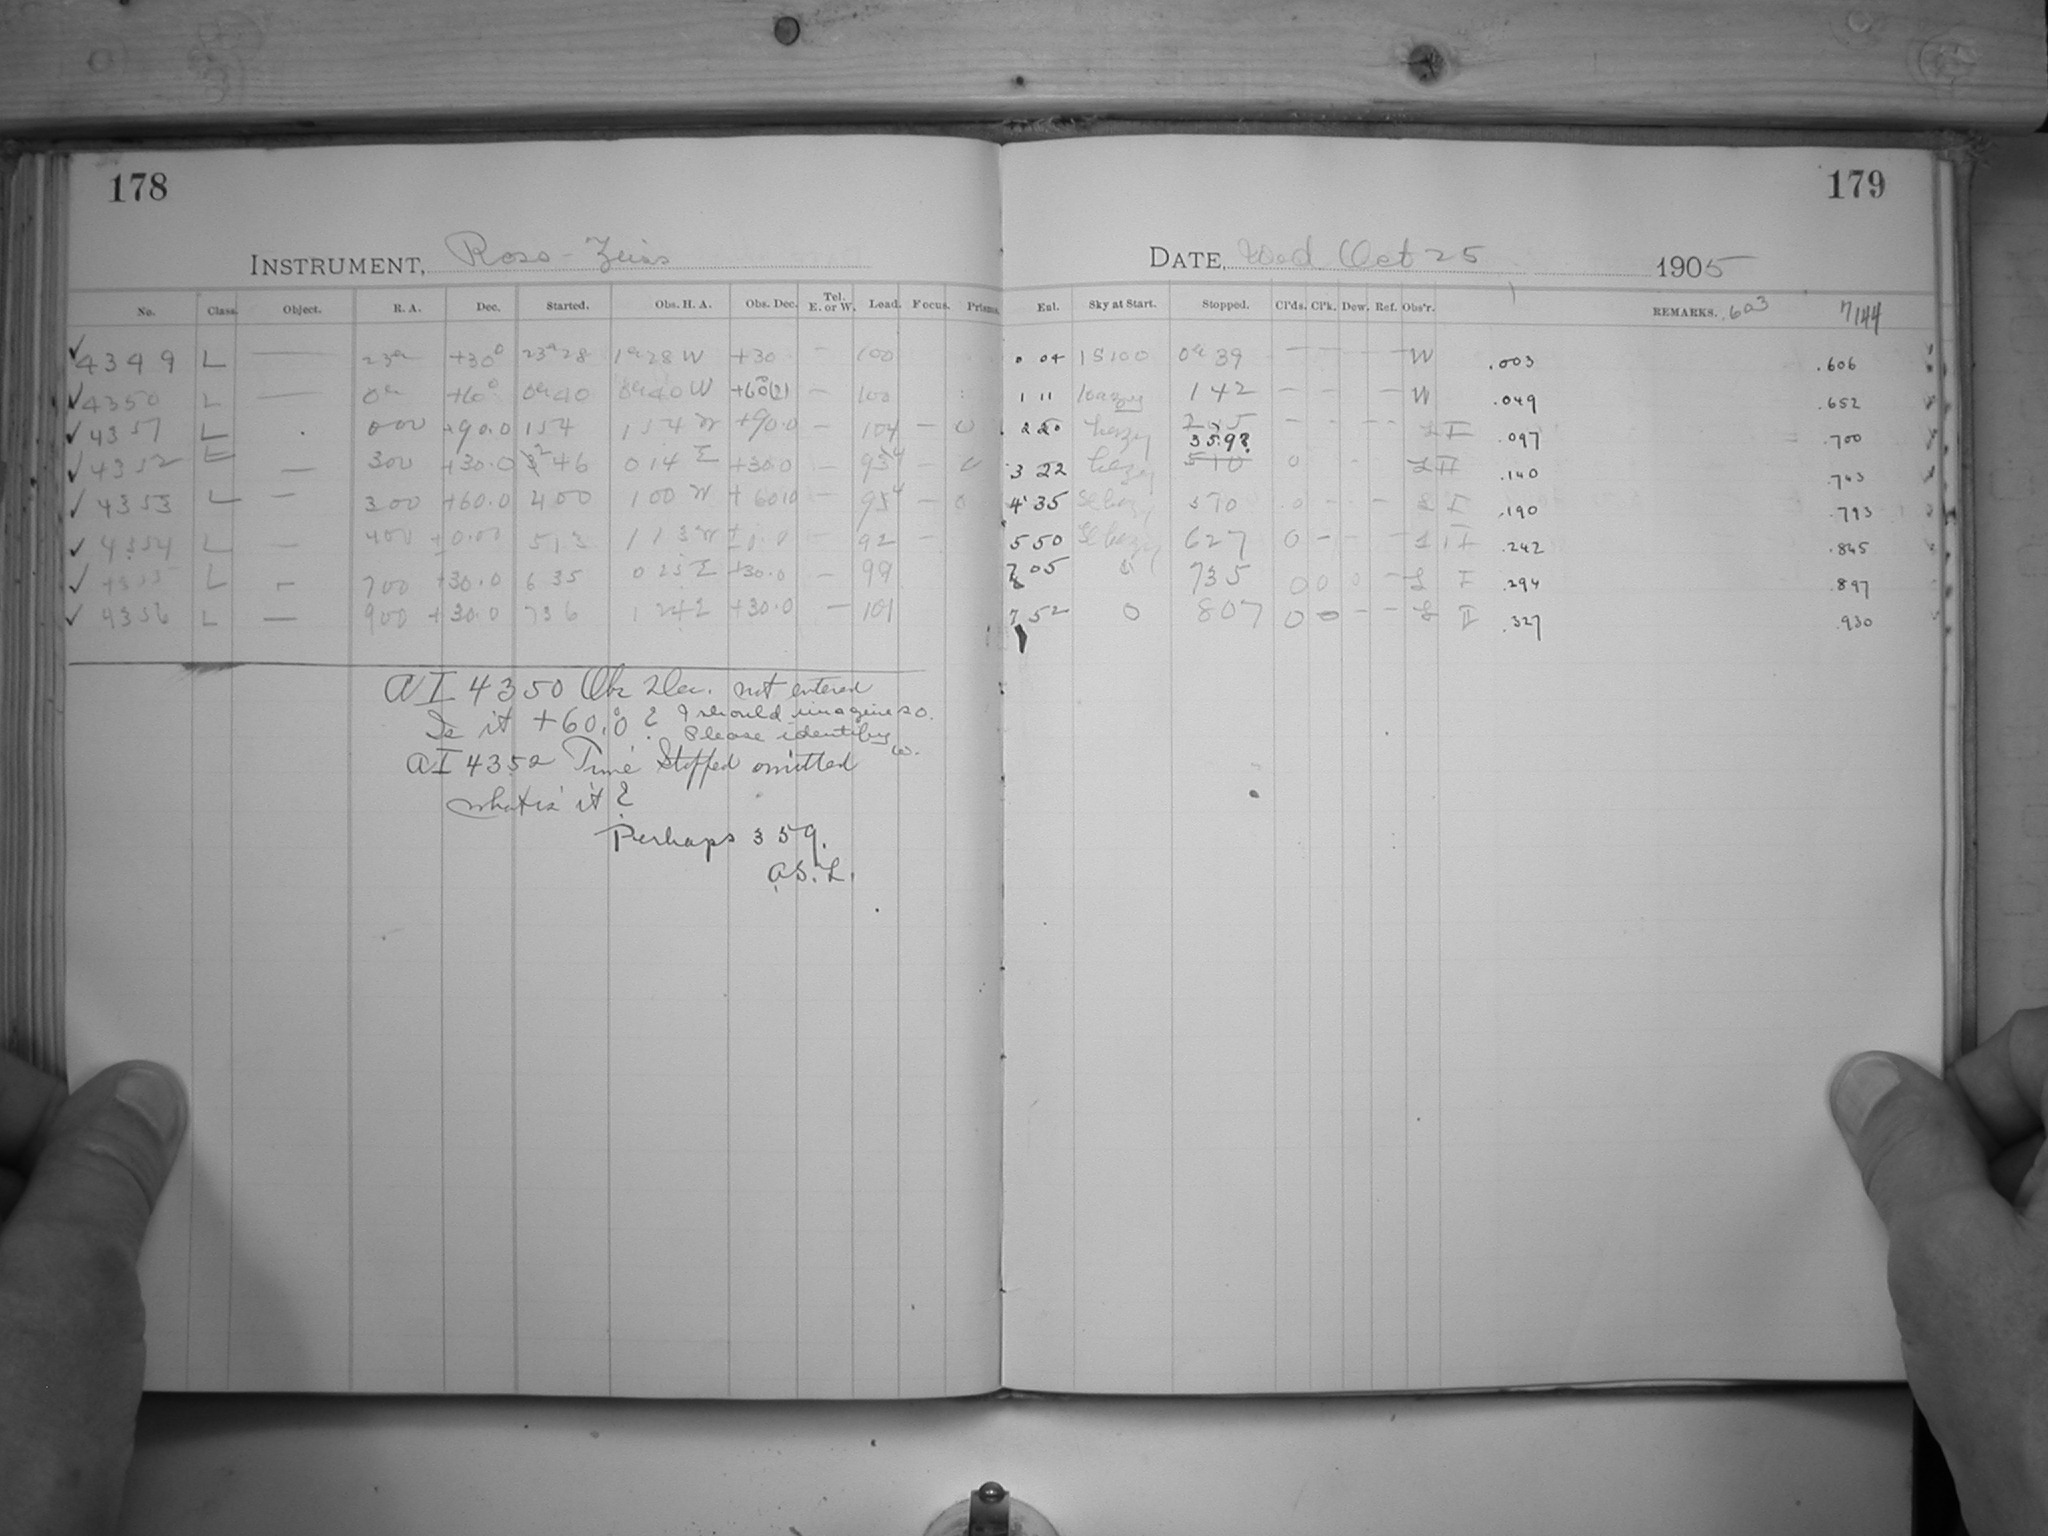 178
179
INSTRUMENT, Ross-Zeiss
DATE, Wed Oct 25 1905
No. Class. Object. R. A. Dec. Started. Obs. H. A. Obs. Dec. Tel. E. or W. Lead. Focus. Prisms. Enl. Sky at Start. Stopped. Cl'ds. Cl'k. Dew. Ref. Obs'r. REMARKS. .603 7144
✓ 4349 L — 23h +30° 23h28 1h28W +30 — 100 0 04 15100 0h 39 — — — W .003 .606
✓ 4350 L — 0h +60° 0h40 0h40W +60(?) — 100 1 11 hazy 142 — — — W .049 .652
✓ 4351 L 000 +90.0 154 154 W +90.0 — 104 — 0 2 20 hazy 245 — — — L I .097 .700
✓ 4352 L — 300 +30.0 246 014 E +30.0 — 95 — 3 22 hazy 359? 510 0 L II .140 .743
✓ 4353 L — 300 +60.0 400 100 W +60.0 — 95 — 0 4 35 510 0 — — — L I .190 .793
✓ 4354 L — 400 ±0.00 513 113 W — 92 — 5 50 627 0 — — — L II .242 .845
✓ 4355 L — 700 +30.0 635 025 E +30.0 — 99 7 05 0 735 0 0 0 — L I .294 .897
✓ 4356 L — 900 +30.0 736 124 E +30.0 — 101 7 52 0 807 0 0 — — L II .327 .930
AI 4350 Obs Dec. not entered
Is it +60.°0? I should imagine so.
Please identify
W.
AI 4352 Time Stopped omitted
what is it?
Perhaps 3 59.
A.S.L.